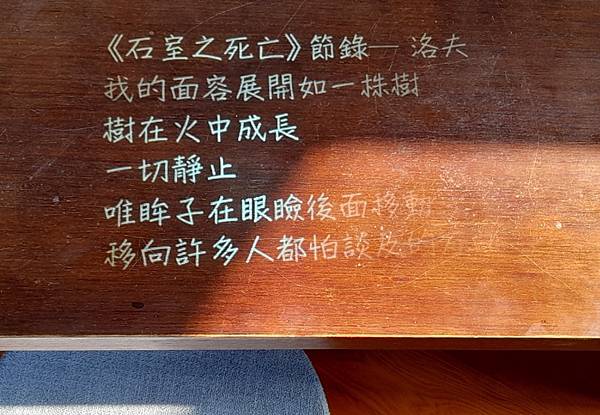 《石室之死亡》節錄— 洛夫
我的面容展開如一株樹
樹在火中成長
一切靜止
唯眸子在眼瞼後面移動
移向許多人都怕談及的方向